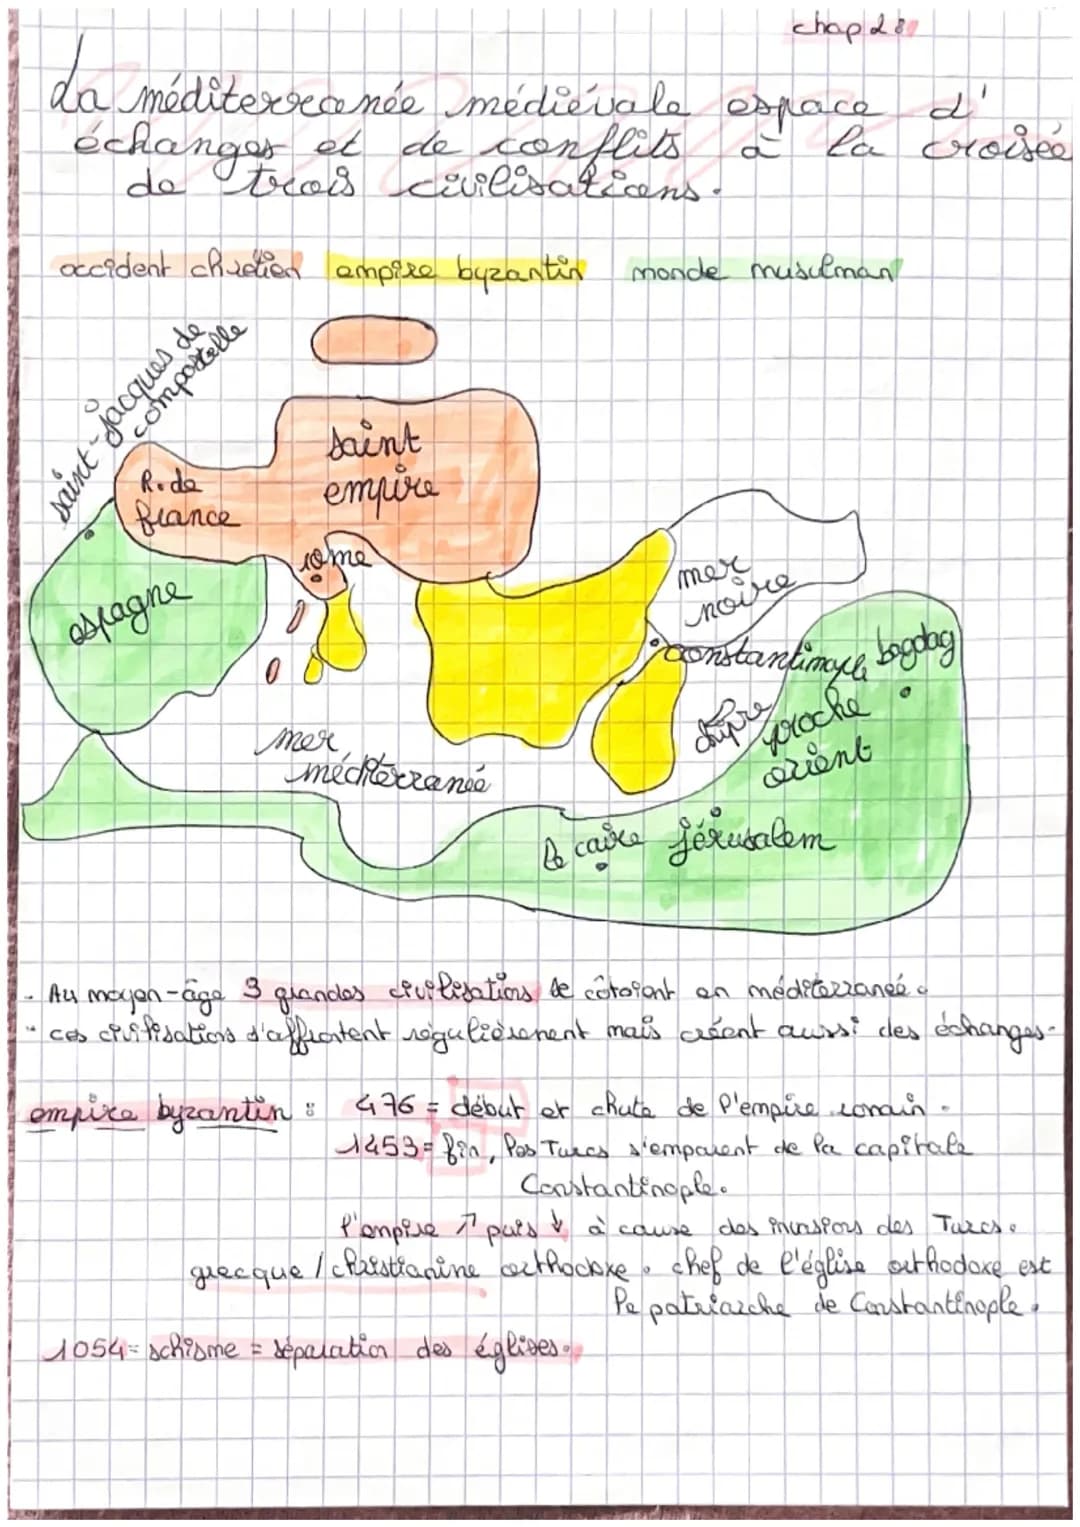 chap 2 :
La méditerranée médiévale espace d'
échanges et de conflits à la croisée
de trois civilisations.
occident chrétien empire byzantin monde musulman
saint-jacques de
compostelle
saint
empire
R. de
france
rome
espagne
mer
noire
constantinople
bagdag
chypre
proche
orient
mer
méditerranée
le caire
jérusalem
- Au moyen-âge 3 grandes civilisations se côtoient en méditerranée.
- ces civilisations s'affrontent régulièrement mais créent aussi des échanges.
empire byzantin : 476 = début et chute de l'empire romain.
1453 = fin, les Turcs s'emparent de la capitale
Constantinople.
l'empire ↗ puis ↓ à cause des invasions des Turcs.
grecque / christianine orthodoxe. chef de l'église orthodoxe est
le patriarche de Constantinople.
1054 = schisme = séparation des églises.